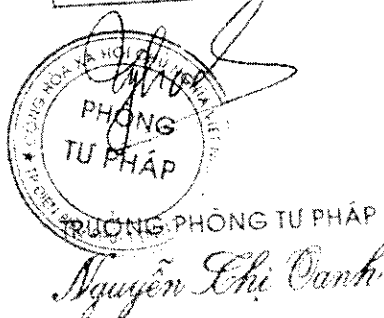 CỘNG HÒA XÃ HỘI CHỦ NGHĨA VIỆT
PHÒNG
TƯ PHÁP
TRƯỞNG PHÒNG TƯ PHÁP
Nguyễn Thị Oanh